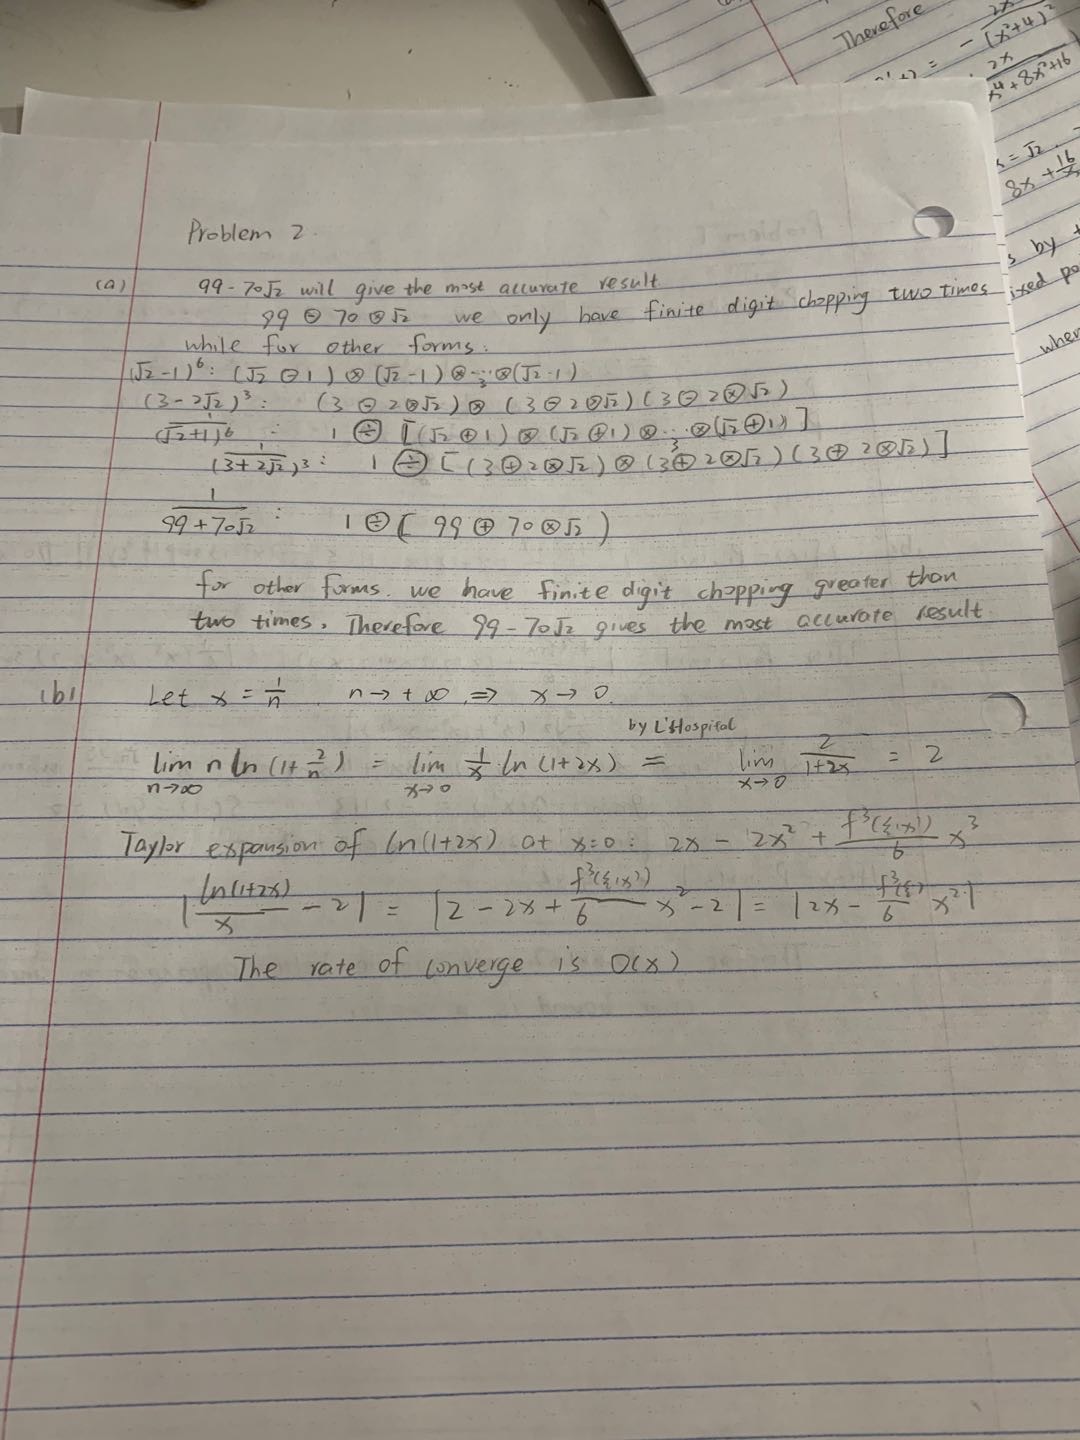 Therefore
= - 2x / (x²+4)²
2x / x⁴+8x²+16
x = √2
8x + 16/x
s by
ixed po
when
Problem 2.
(a) 99 - 70√2 will give the most accurate result
99 ⊖ 70 ⊗ √2 we only have finite digit chopping two times
while for other forms:
(√2-1)⁶: (√2 ⊖ 1) ⊗ (√2-1) ⊗ ... ⊗ (√2-1)
(3-2√2)³: (3 ⊖ 2⊗√2) ⊗ (3⊖2⊗√2)(3⊖2⊗√2)
1/(√2+1)⁶ : 1 ⊕ [(√2 ⊕ 1) ⊗ (√2 ⊕ 1) ⊗ ... ⊗(√2⊕1)]
1/(3+2√2)³ : 1 ⨸ [(3⊕2⊗√2) ⊗ (3⊕2⊗√2)(3⊕2⊗√2)]
1/(99+70√2) : 1 ⨸ ( 99 ⊕ 70 ⊗√2 )
for other forms. we have finite digit chopping greater than
two times. Therefore 99-70√2 gives the most accurate result.
(b) Let x = 1/n . n→+∞ ⇒ x→0.
by L'Hospital
lim n→∞ n ln(1+2/n) = lim x→0 1/x · ln(1+2x) = lim x→0 2/(1+2x) = 2
Taylor expansion of ln(1+2x) at x=0: 2x - 2x² + f³(ξ(x))/6 x³
|ln(1+2x)/x - 2| = |2 - 2x + f³(ξ(x))/6 x² - 2| = |2x - f³(ξ)/6 x²|
The rate of converge is O(x)